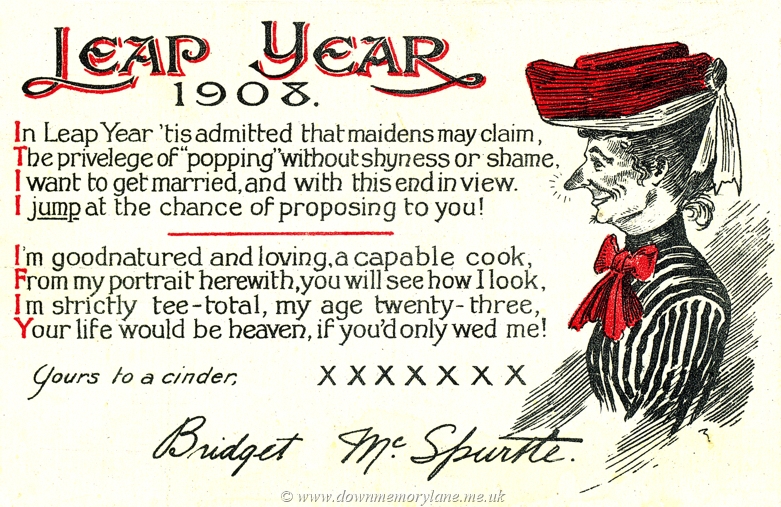 LEAP YEAR
1908.
In Leap Year 'tis admitted that maidens may claim,
The privelege of "popping" without shyness or shame,
I want to get married, and with this end in view.
I jump at the chance of proposing to you!
I'm goodnatured and loving, a capable cook,
From my portrait herewith, you will see how I look,
Im strictly tee-total, my age twenty-three,
Your life would be heaven, if you'd only wed me!
Yours to a cinder, X X X X X X X
Bridget Mc Spurtte.
© www.downmemorylane.me.uk